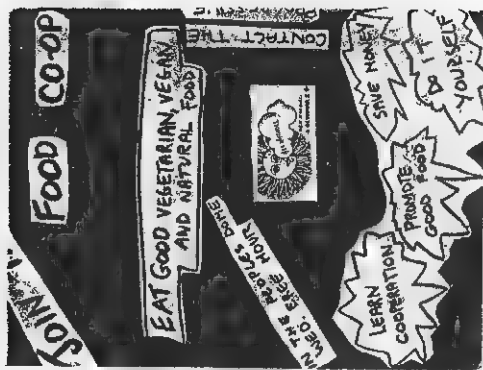 JOIN
FOOD CO-OP
EAT GOOD VEGETARIAN, VEGAN,
AND NATURAL FOOD
CONTACT THE
IN THE PEOPLES DOME
WED. SPACE HOUR
LEARN
COOPERATION!
PROMOTE
GOOD FOOD
SAVE MONEY
DO IT
YOURSELF